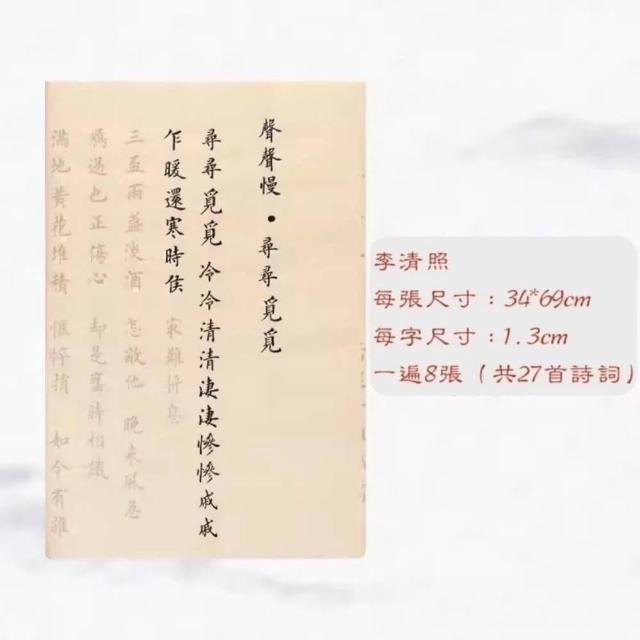 聲聲慢・尋尋覓覓
尋尋覓覓 冷冷清清 淒淒慘慘戚戚
乍暖還寒時候 最難將息
三盃兩盞淡酒 怎敵他 晚來風急
鴈過也 正傷心 卻是舊時相識
滿地黃花堆積 憔悴損 如今有誰
李清照
每張尺寸：34*69cm
每字尺寸：1.3cm
一遍8張（共27首詩詞）